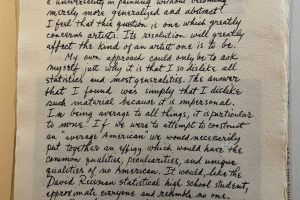 a universality in painting without becoming
merely more generalized and abstract?
I feel that this question is one which greatly
concerns artists. Its resolution will greatly
affect the kind of an artist one is to be.
My own approach could only be to ask
myself just why it is that I so dislike all
statistics and most generalities. The answer
that I found was simply that I dislike
such material because it is impersonal.
In being average to all things, it is particular
to none. If we were to attempt to construct
an "average American" we would necessarily
put together an effigy which would have the
common qualities, peculiarities, and unique
qualities of no American. It would, like the
David Riesman statistical high school student,
approximate everyone and resemble no one.